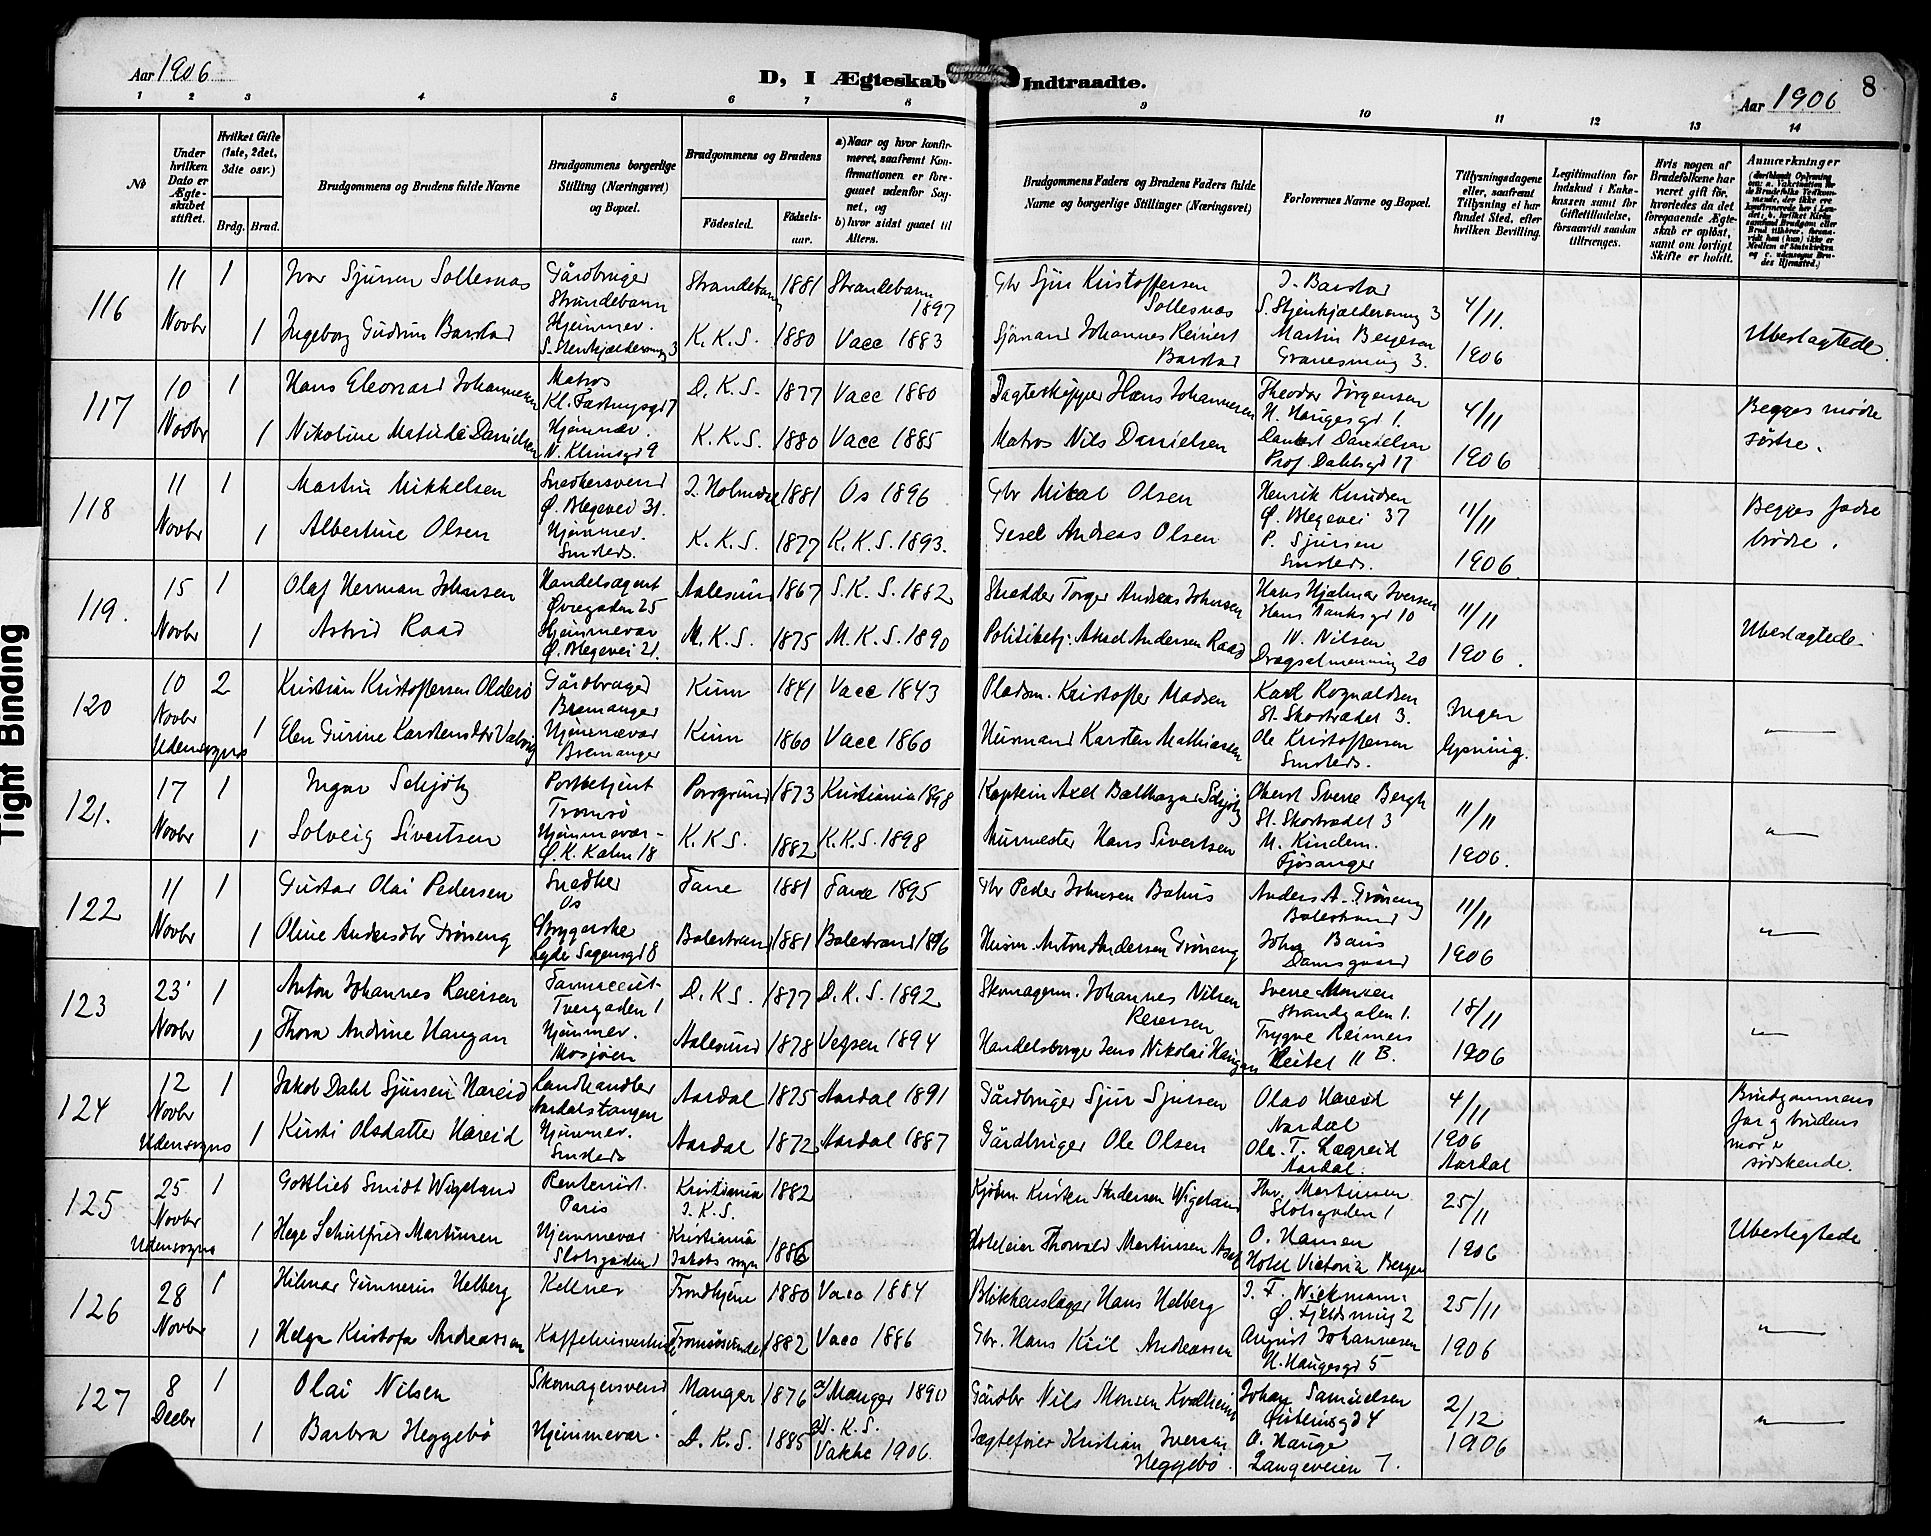 Aar 1906
D, I Ægteskab Indtraadte.
Aar 1906
8
1 2 3 4 5 6 7 8 9 10 11 12 13 14
No
Under hvilken Dato er Ægteskabet stiftet.
Hvilket Gifte (1ste, 2det, 3die osv.)
Brdg. Brud.
Brudgommens og Brudens fulde Navne
Brudgommens borgerlige Stilling (Næringsvei) og Bopæl.
Brudgommens og Brudens
Födested.
Födselsaar.
a) Naar og hvor konfirmeret, saafremt Konfirmationen er foregaaet udenfor Sognet, og
b) hvor sidst gaaet til Alters.
Brudgommens Faders og Brudens Faders fulde Navne og borgerlige Stillinger (Næringsvei)
Forlovernes Navne og Bopæl.
Tillysningsdagene eller, saafremt Tillysning ei har fundet Sted, efter hvilken Bevilling.
Legitimation for Indskud i Enkekassen samt for Giftetilladelse, forsaavidt saadan tiltrænges.
Hvis nogen af Brudefolkene har været gift för, hvorledes da det foregaaende Ægteskab er oplöst, samt om lovligt Skifte er holdt.
Anmerkninger
116
11 Novbr
1
Ivar Sjursen Sollesnæs
Gårdbruger Strandebarm
Strandebarm
1881
Strandebarm 1897
Gbr Sjur Kristoffersen Sollesnæs
J. Barstad
S. Stenkjeldersmug 3
4/11
1906
Ubeslægtede.
1
Ingeborg Gudrun Barstad
Hjemmev.
S. Stenkjeldersmug 3
K. K. S.
1880
Vacc 1883
Sjömand Johannes Reinert Barstad
Martin Bergesen
3.
117
10 Novbr
1
Hans Eleonard Johannesen
Matros
Kl. Fæstnigsgd 7
D. K. S.
1877
Vacc 1880
Jægteskipper Hans Johannesen
Theodor Jörgensen
H. Haugesgd 1.
4/11
1906
Begges mødre søstre.
1
Nikoline Matilde Danielsen
Hjemmev.
N. Klinisgd 9
K. K. S.
1880
Vacc 1885
Matros Nils Danielsen
Danielsen
Prof. Dahlsgd 17
118
11 Novbr
1
Martin Mikkelsen
Snedkersvend
Ø. Blegevei 31.
1881
Os 1896
Gbr Mikal Olsen
Henrik Knudsen
Ø. Blegevei 37
11/11
1906.
Begges fædre brødre.
1
Albertine Olsen
Hjemmev.
Smsteds.
K. K. S.
1877
K. K. S. 1893.
Gesel Andreas Olsen
P. Sjursen
Smsteds.
119.
15 Novbr
1
Olaf Herman Johnsen
Handelsagent
Øvregaden 25
Aalesund
1867
S. K. S. 1882
Skrædder Torger Andreas Johnsen
Hans Hjalmar Iversen
Hans Tanksgd 10
11/11
1906.
Ubeslægtede.
1
Astrid Raad
Hjemmevær
Ø. Blegevei 21.
M. K. S.
1875
M. K. S. 1890
Politibetj. Andersen Raad
W. Nilsen
Dragsalmenning 20
120
10 Novbr
Udensogns
2
Kristian Kristoffersen Olderö
Gårdbruger
Bremanger
Kinn
1841
Vacc 1843
Pladsm. Kristoffer Madsen
Karl Rognaldsen
St. Skostrædet 3.
Ingen lysning.
"
1
Elen Gurine Karstensdtr Valvig
Hjemmevær
Bremanger
Kinn
1860
Vacc 1860
Husmand Karsten Mathiassen
Ole Kristoffersen
Smsteds.
121.
17 Novbr
1
Ingar Schjötz
Postbetjent
Tromsö
Porsgrund
1873
Kristiania 1898
Kaptein Axel Balthazar Schjötz
Oberst Sverre Bergh
St. Skostrædet 3
11/11
1906.
"
1
Solveig Sivertsen
Hjemmevær
Ø. K. Kalm 18
K. K. S.
1882
K. K. S. 1898
Murmester Hans Sivertsen
M. Kindem.
Fjösanger
122
11 Novbr
1
Gustav Olai Pedersen
Snedker
Os
Fane
1881
Fane 1895
Gbr Peder Johnsen Bahus
Anders A. Gröneng
Balestrand
11/11
1906
"
1
Oline Andersdtr Gröneng
Strygerske
Lyder Sagensgd 8
Balestrand
1881
Balestrand 1896
Husm. Anton Andersen Gröneng
John Baus
Damsgaard
123
23 Novbr
1
Anton Johannes Reiersen
Farmaceut
Tvergaden 1
D. K. S.
1877
D. K. S. 1892
Skomagerm. Johannes Nilsen Reiersen
Sverre Monsen
Strandgaten 1.
18/11
1906
"
1
Thora Andrine Haugan
Hjemmev.
Mosjöen
Aalesund
1878
Vefsen 1894
Handelsborger Jens Nikolai Haugan
Trygve Reimers
Veitet 11 B.
124
12 Novbr
Udensogns
1
Jakob Dahl Sjursen Hareid
Landhandler
Aardalstangen
Aardal
1875
Aardal 1891
Gårdbruger Sjur Sjursen
Olav Hareid
Aardal
4/11
1906
Aardal
Brudgommens far og brudens mor e søskende.
1
Kirsti Olsdatter Hareid
Hjemmev.
Smsteds
Aardal
1872
Aardal 1887
Gårdbruger Ole Olsen
Ole T. Lægreid
Aardal.
125
25 Novbr
Udensogns
1
Gottlieb Smidt Wigeland
Rentenist.
Paris
Kristiania
J. K. S.
1882
Kjöbm. Kirsten Andersen Wigeland
Thv. Martinsen
Slotsgaden 1
25/11
1906
Ubeslegtede
1
Hege Schulfred Martinsen
Hjemmevær
Slotsgaden 1
Kristiania
Jakobs sogn
1886
Hoteleier Thorvald Martinsen
O. Hansen
Hotel Victoria Bergen
126
28 Novbr
1
Hilmar Gunnerius Helberg
Kelner
Trondhjem
1880
Vacc 1884
Blikkenslager Hans Helberg
J. F. Wickmann
Ø. Fjeldsmug 2
25/11
1906
"
1
Helga Kristofa Andreassen
Kaffehusvertinde
Tromsösundet
1882
Vacc 1886
Gbr. Hans Kiil Andreassen
August Johannesen
H. Haugesgd 5
127
8 Decbr
1
Olai Nilsen
Skomagersvend
Manger
1876
a/ Manger 1890
Gårdbr Nils Monsen Kvalheim
Johan Samuelsen
Øisteinsgd 4
2/12
1906
"
1
Barbra Heggebö
Hjemmevær.
D. K. S.
1885
K. S.
Vakke 1906.
Jægteføier Kristian Iversen Heggebö
O. Hauge
Langeveien 7.
Tight Binding